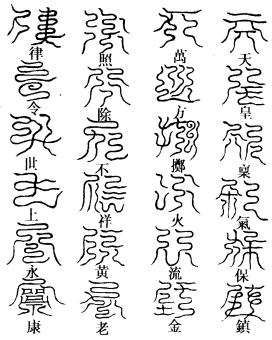 天皇稟氣保鎮
萬方擲火流金
照除不祥黃老
律令世上永康